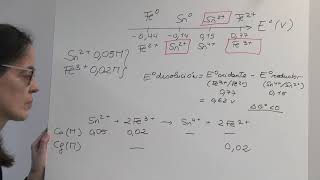 Fe⁰ Sn⁰ Sn²⁺ Fe²⁺
-0,44 -0,14 0,15 0,77 E⁰(V)
Fe²⁺ Sn²⁺ Sn⁴⁺ Fe³⁺
Sn²⁺ 0,05M
Fe³⁺ 0,02M
E⁰disolución = E⁰oxidante - E⁰reductor
(Fe³⁺/Fe²⁺) (Sn⁴⁺/Sn²⁺)
0,77 0,15
= 0,62 V ΔG⁰<0
Sn²⁺ + 2Fe³⁺ → Sn⁴⁺ + 2Fe²⁺
Co(M) 0,05 0,02 — —
Cf(M) — 0,02